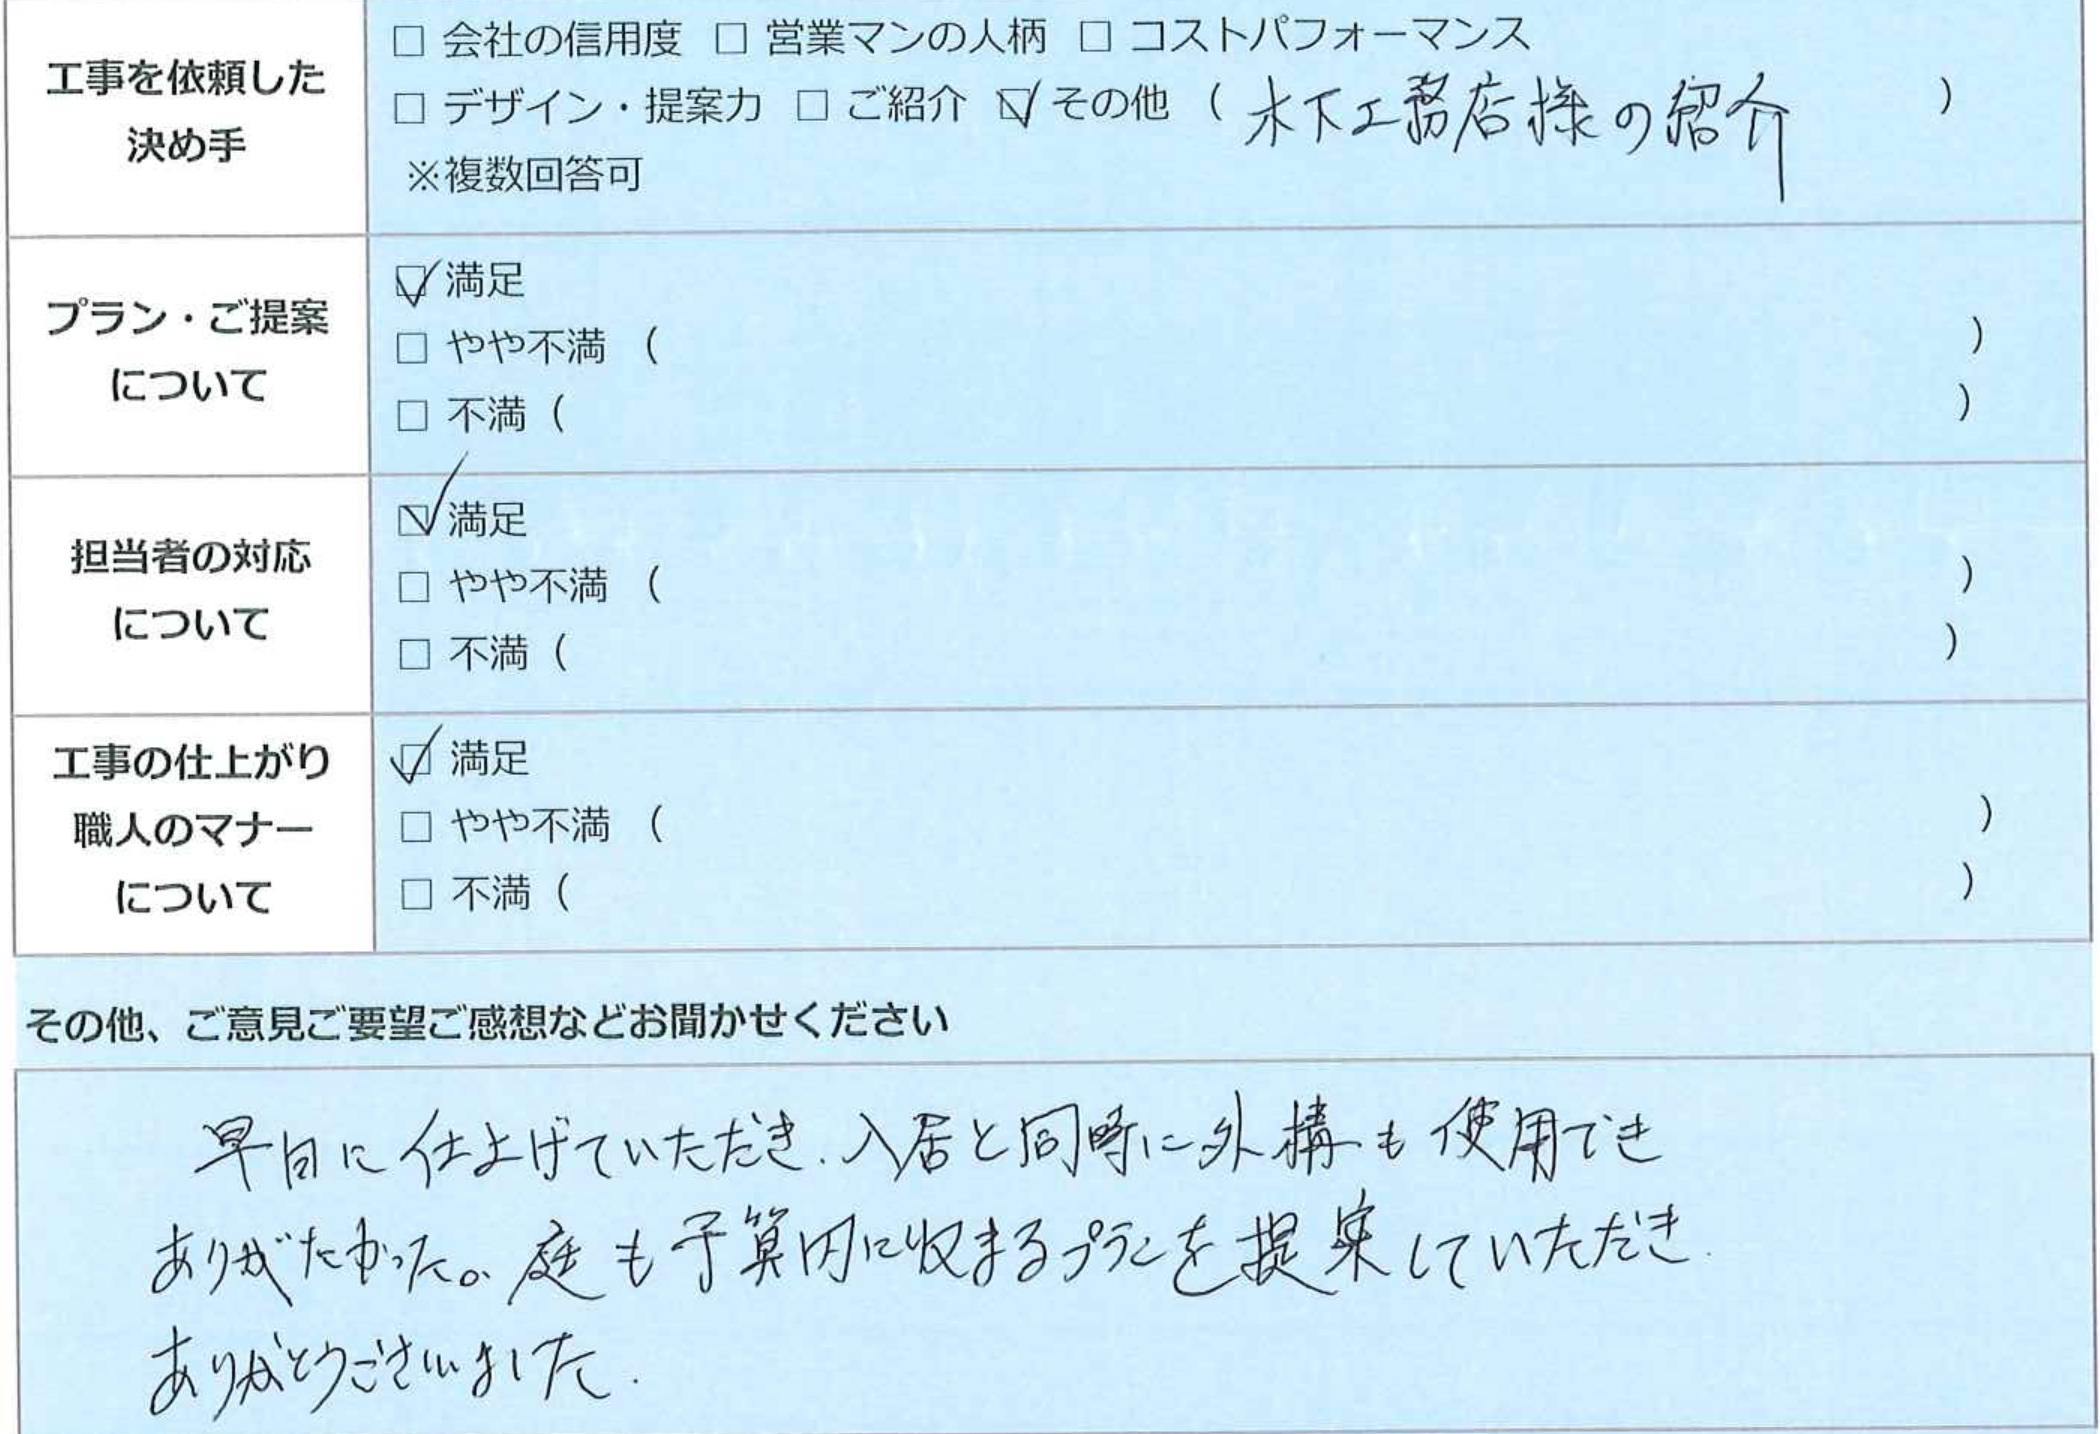 工事を依頼した
決め手
□ 会社の信用度 □ 営業マンの人柄 □ コストパフォーマンス
□ デザイン・提案力 □ ご紹介 ☑ その他 ( 木下工務店様の紹介 )
※複数回答可
プラン・ご提案
について
☑ 満足
□ やや不満 ( )
□ 不満 ( )
担当者の対応
について
☑ 満足
□ やや不満 ( )
□ 不満 ( )
工事の仕上がり
職人のマナー
について
☑ 満足
□ やや不満 ( )
□ 不満 ( )
その他、ご意見ご要望ご感想などお聞かせください
早目に仕上げていただき、入居と同時に外構も使用でき
ありがたかった。庭も予算内に収まるプランを提案していただき
ありがとうございました.